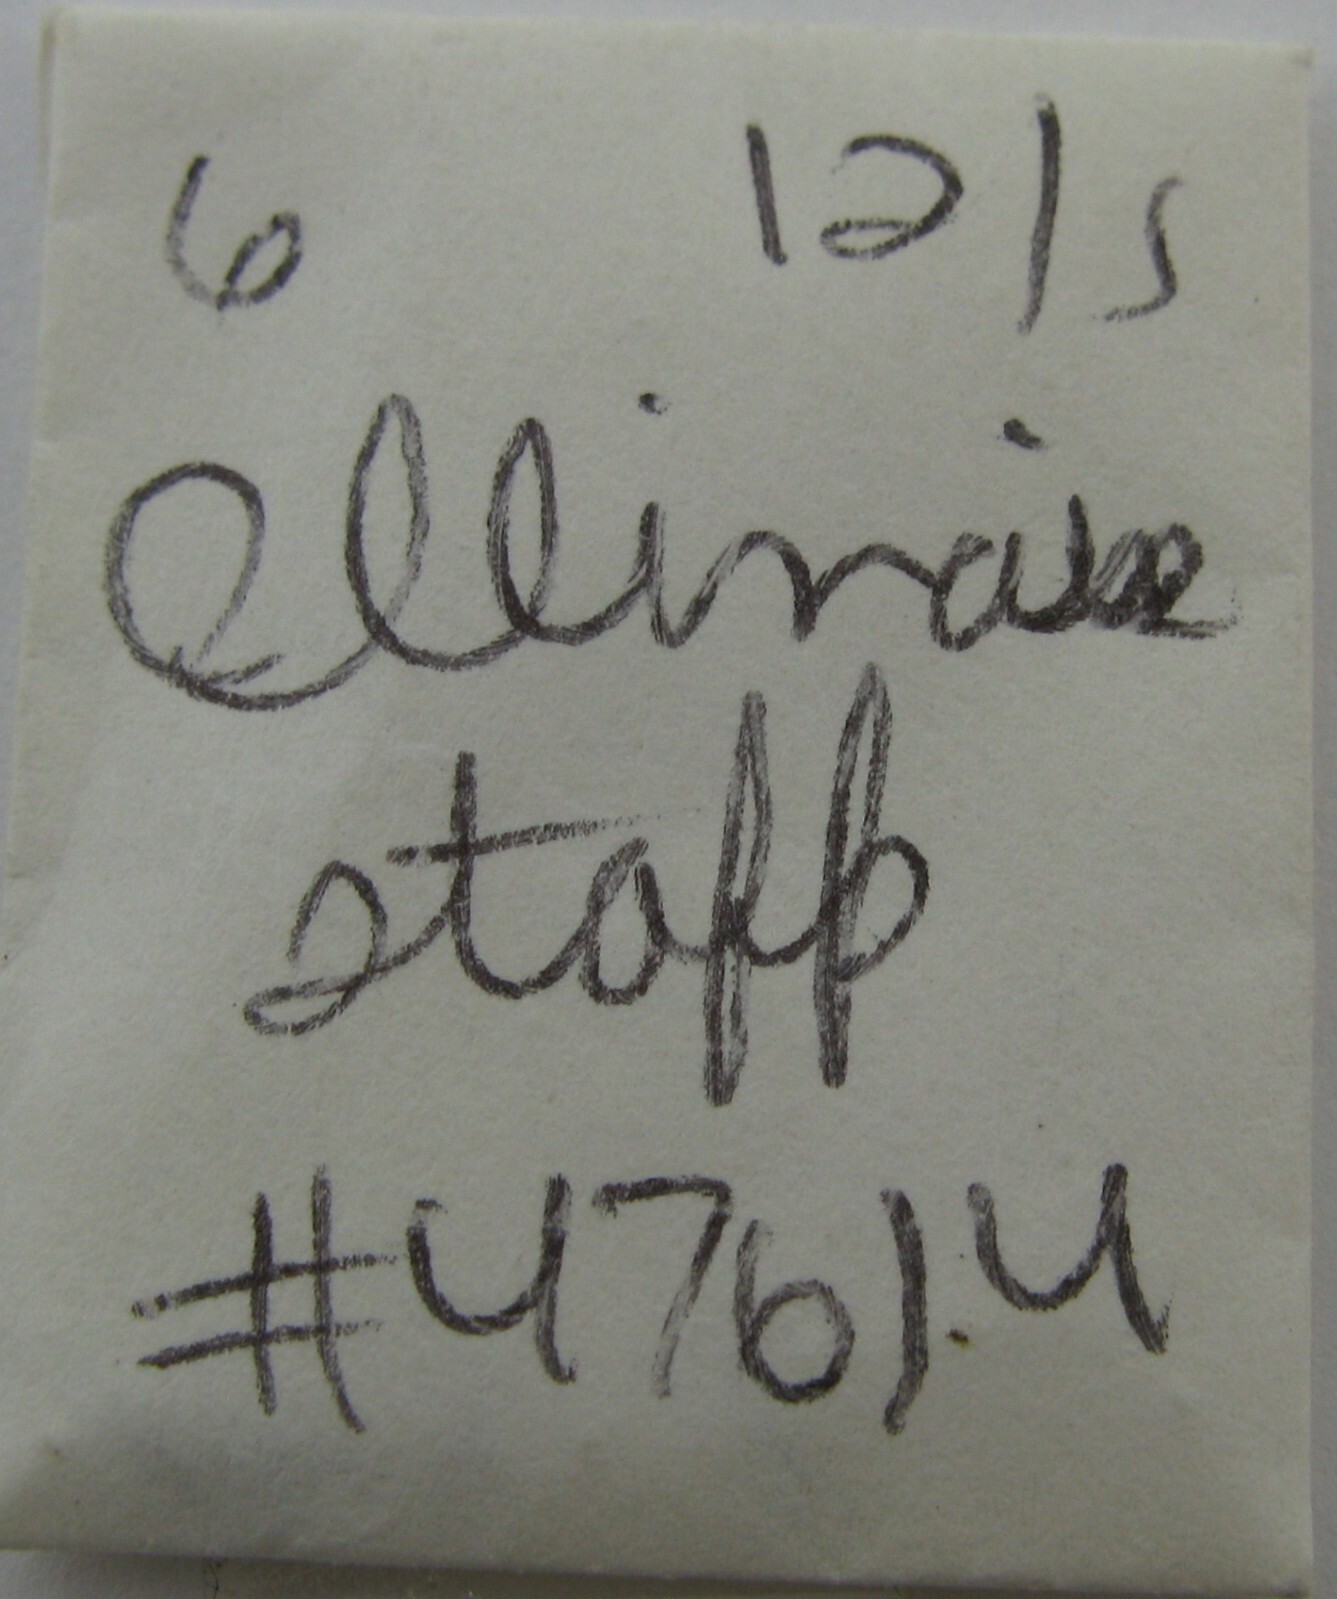 6 12/s
ellimaise
staff
#4761.4